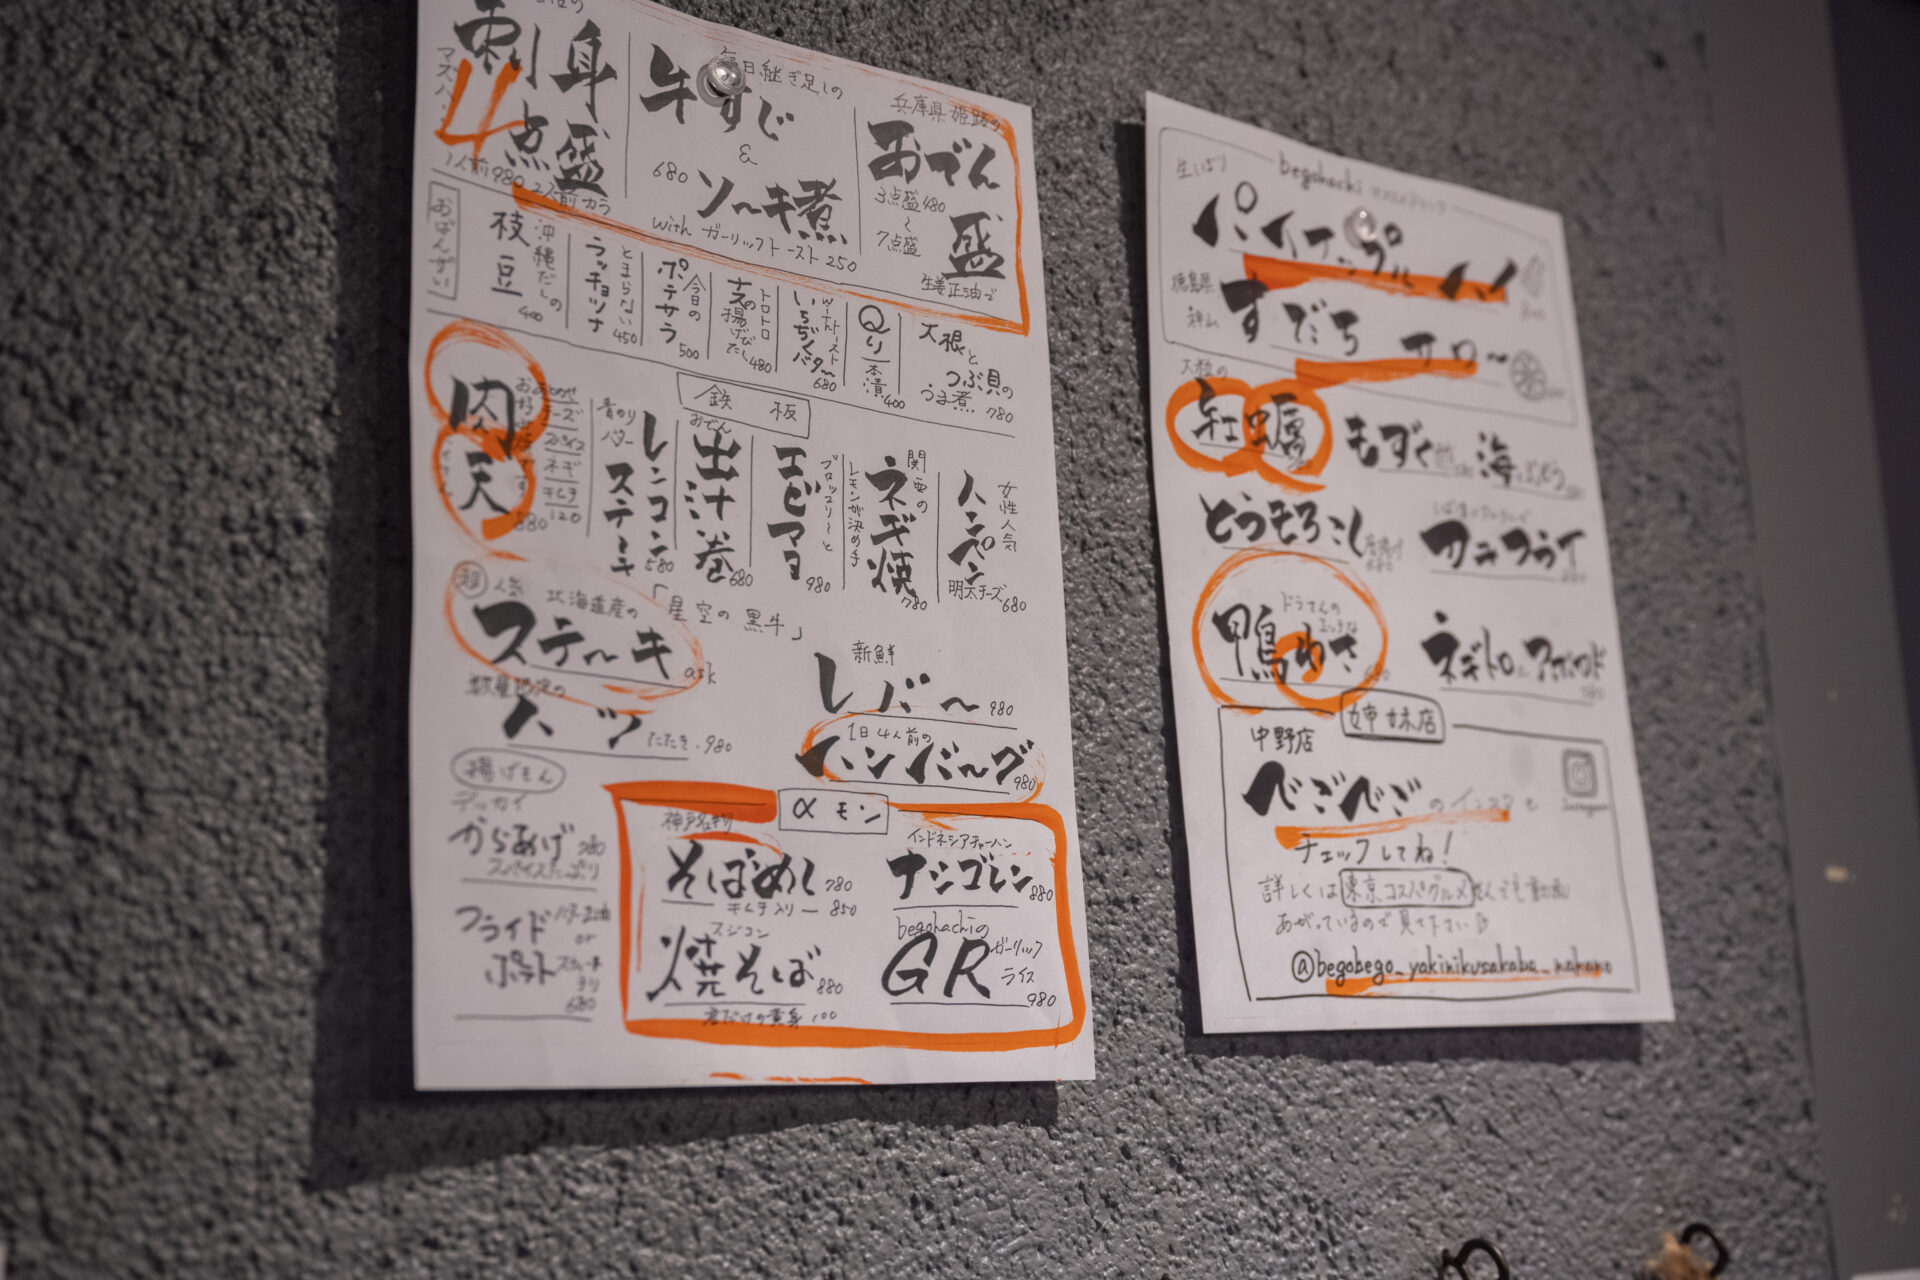 刺身
4点盛
1人前 980 2人前カラ
毎日継ぎ足しの
牛すじ
&
680 ソーキ煮
with ガーリックトースト 250
兵庫県姫路の
おでん
盛
3点盛 480
〜
7点盛
生姜正油で
おばんざい
沖縄だしの
枝豆
400
とまらない
ラッキョツナ
450
今日の
ポテサラ
500
トロトロ
ナスの揚げびたし 480
いちぢくバター
680
Qり
一本漬
400
大根と
つぶ貝の
うま煮 780
鉄板
肉天
880
チーズ
ネギ
キムチ
120
青のりバター
レンコンステーキ
580
おでん
出汁巻
680
エビマヨ
ブロッコリーと
980
関西の
ネギ焼
レモンが決め手
780
女性人気
ハンペン
明太チーズ 680
超人気
北海道産の「星空の黒牛」
ステーキ
ask
数量限定の
ハツ
たたき・980
新鮮
レバー 980
1日4人前の
ハンバーグ
980
揚げもん
デッカイ
からあげ
スパイスたっぷり
フライド
ポテト
680
〆モン
神戸名物
そばめし 780
キムチ入り 850
スジコン
焼そば 880
君だけの黄身 100
インドネシアチャーハン
ナシゴレン 880
begohachiの
GR ガーリックライス
980
生しぼり
begohachi
パイナップルハイ
徳島県
神山
すだちサワー
大粒の
牡蠣
もずく
海ぶどう
とうもろこし
カニフライ
鴨わさ
ネギトロとアボカド
姉妹店
中野店
べごべごのインスタも
チェックしてね!
詳しくは東京コスパグルメさんでも動画
あがっているので見て下さい
@begobego_yakinikusakaba_nakano